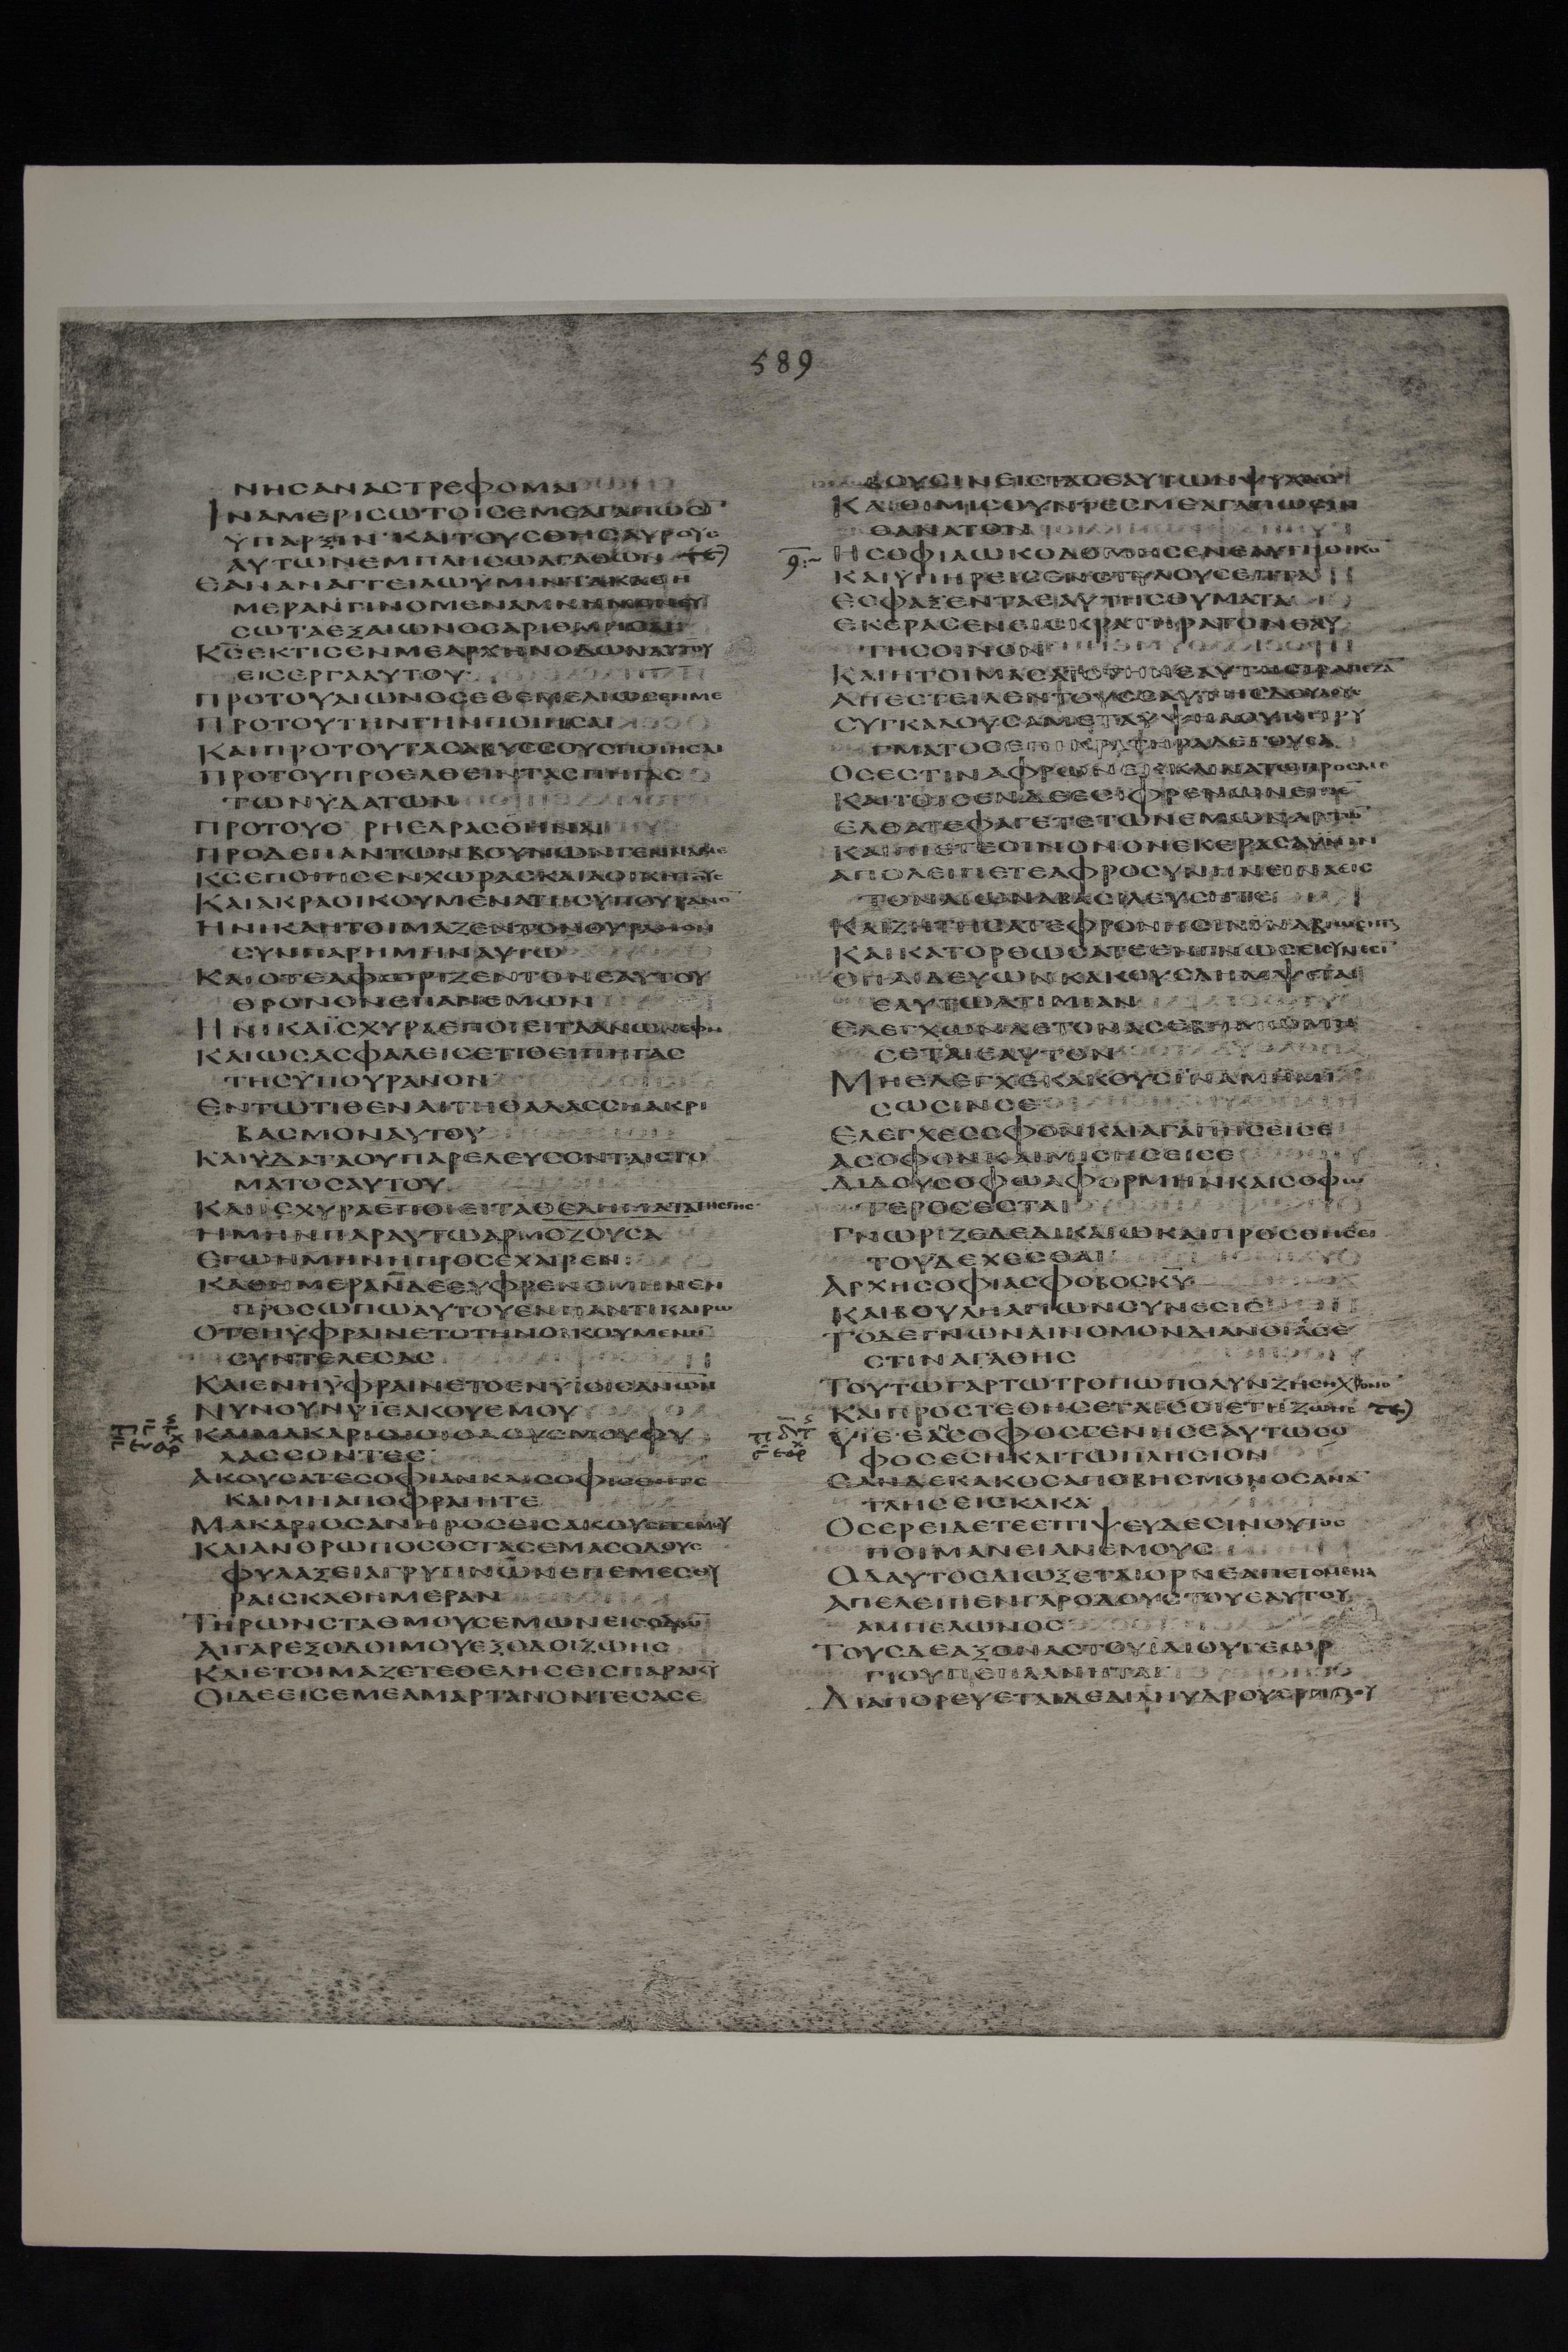 589
ΝΗCΑΝΑCΤΡΕΦΟΜΑΙ
ΙΝΑΜΕΡΙCΩΤΟΙCΕΜΕΑΓΑΠΩCΙ
ΥΠΑΡΞΙΝ ΚΑΙΤΟΥCΘΗCΑΥΡΟΥC
ΑΥΤΩΝΕΜΠΛΗCΩΑΓΑΘΩΝ
ΕΑΝΑΝΑΓΓΕΙΛΩΥΜΙΝΤΑΚΑΘΗ
ΜΕΡΑΝΓΙΝΟΜΕΝΑΜΝΗΜΟΝΕΥ
CΩΤΑΕΞΑΙΩΝΟCΑΡΙΘΜΗCΑΙ
ΚCΕΚΤΙCΕΝΜΕΑΡΧΗΝΟΔΩΝΑΥΤΟΥ
ΕΙCΕΡΓΑΑΥΤΟΥ
ΠΡΟΤΟΥΑΙΩΝΟCΕΘΕΜΕΛΙΩCΕΝΜΕ
ΠΡΟΤΟΥΤΗΝΓΗΝΠΟΙΗCΑΙ
ΚΑΙΠΡΟΤΟΥΤΑCΑΒΥCCΟΥCΠΟΙΗCΑΙ
ΠΡΟΤΟΥΠΡΟΕΛΘΕΙΝΤΑCΠΗΓΑC
ΤΩΝΥΔΑΤΩΝ
ΠΡΟΤΟΥΟ ΡΗΕΔΡΑCΘΗΝΑΙ
ΠΡΟΔΕΠΑΝΤΩΝΒΟΥΝΩΝΓΕΝΝΑΜΕ
ΚCΕΠΟΙΗCΕΝΧΩΡΑCΚΑΙΑΟΙΚΗΤΟΥC
ΚΑΙΑΚΡΑΟΙΚΟΥΜΕΝΑΤΗCΥΠΟΥΡΑΝΟ
ΗΝΙΚΑΗΤΟΙΜΑΖΕΝΤΟΝΟΥΡΑΝΟΝ
CΥΝΠΑΡΗΜΗΝΑΥΤΩ
ΚΑΙΟΤΕΑΦΩΡΙΖΕΝΤΟΝΕΑΥΤΟΥ
ΘΡΟΝΟΝΕΠΑΝΕΜΩΝ
ΗΝΙΚΑΙCΧΥΡΑΕΠΟΙΕΙΤΑΑΝΩΝΕΦΗ
ΚΑΙΩCΑCΦΑΛΕΙCΕΤΙΘΕΙΠΗΓΑC
ΤΗCΥΠΟΥΡΑΝΟΝ
ΕΝΤΩΤΙΘΕΝΑΙΤΗΘΑΛΑCCΗΑΚΡΙ
ΒΑCΜΟΝΑΥΤΟΥ
ΚΑΙΥΔΑΤΑΟΥΠΑΡΕΛΕΥCΟΝΤΑΙCΤΟ
ΜΑΤΟCΑΥΤΟΥ
ΚΑΙΙCΧΥΡΑΕΠΟΙΕΙΤΑΘΕΛΗΜΑΤΑΤΗCΓΗC
ΗΜΗΝΠΑΡΑΥΤΩΑΡΜΟΖΟΥCΑ
ΕΓΩΗΜΗΝΗΠΡΟCΕΧΑΙΡΕΝ
ΚΑΘΗΜΕΡΑΝΔΕΕΥΦΡΕΝΟΜΗΝΕΝ
ΠΡΟCΩΠΩΑΥΤΟΥΕΝΠΑΝΤΙΚΑΙΡΩ
ΟΤΕΗΥΦΡΑΙΝΕΤΟΤΗΝΟΙΚΟΥΜΕΝΗ
CΥΝΤΕΛΕCΑC
ΚΑΙΕΝΗΥΦΡΑΙΝΕΤΟΕΝΥΙΟΙCΑΝΩΝ
ΝΥΝΟΥΝΥΙΕΑΚΟΥΕΜΟΥ
ΚΑΙΜΑΚΑΡΙΟΙΟΙΟΔΟΥCΜΟΥΦΥ
ΛΑCCΟΝΤΕC
ΑΚΟΥCΑΤΕCΟΦΙΑΝΚΑΙCΟΦΙCΘΗΤΕ
ΚΑΙΜΗΑΠΟΦΡΑΓΗΤΕ
ΜΑΚΑΡΙΟCΑΝΗΡΟCΕΙCΑΚΟΥCΕΤΕΜΟΥ
ΚΑΙΑΝΘΡΩΠΟCΟCΤΑCΕΜΑCΟΔΟΥC
ΦΥΛΑΞΕΙΑΓΡΥΠΝΩΝΕΠΕΜΕCΘΥ
ΡΑΙCΚΑΘΗΜΕΡΑΝ
ΤΗΡΩΝCΤΑΘΜΟΥCΕΜΩΝΕΙCΟΔΩ
ΑΙΓΑΡΕΞΟΔΟΙΜΟΥΕΞΟΔΟΙΖΩΗC
ΚΑΙΕΤΟΙΜΑΖΕΤΕΘΕΛΗCΕΙCΠΑΡΑΚΥ
ΟΙΔΕΕΙCΕΜΕΑΜΑΡΤΑΝΟΝΤΕCΑCΕ
ΒΟΥCΙΝΕΙCΤΑCΕΑΥΤΩΝΨΥΧΑC
ΚΑΙΟΙΜΙCΟΥΝΤΕCΜΕΑΓΑΠΩCΙΝ
ΘΑΝΑΤΟΝ
ΗCΟΦΙΑΩΚΟΔΟΜΗCΕΝΕΑΥΤΗΟΙΚΟ
ΚΑΙΥΠΗΡΕΙCΕΝCΤΥΛΟΥCΕΠΤΑ
ΕCΦΑΞΕΝΤΑΕΑΥΤΗCΘΥΜΑΤΑ
ΕΚΕΡΑCΕΝΕΙCΚΡΑΤΗΡΑΤΟΝΕΑΥ
ΤΗCΟΙΝΟΝ
ΚΑΙΗΤΟΙΜΑCΑΤΟΤΗΝΕΑΥΤΗCΤΡΑΠΕΖΑ
ΑΠΕCΤΕΙΛΕΝΤΟΥCΕΑΥΤΗCΔΟΥΛΟΥC
CΥΓΚΑΛΟΥCΑΜΕΤΑΥΨΗΛΟΥΚΗΡΥ
ΓΜΑΤΟCΕΠΙΚΡΑΤΗΡΑΛΕΓΟΥCΑ
ΟCΕCΤΙΝΑΦΡΩΝΕΚΚΛΙΝΑΤΩΠΡΟCΜΕ
ΚΑΙΤΟΙCΕΝΔΕΕCΙΦΡΕΝΩΝΕΙΠΕ
ΕΛΘΑΤΕΦΑΓΕΤΕΤΩΝΕΜΩΝΑΡΤΩ
ΚΑΙΠΙΕΤΕΟΙΝΟΝΟΝΕΚΕΡΑCΑΥΜΙΝ
ΑΠΟΛΕΙΠΕΤΕΑΦΡΟCΥΝΗΝΕΙΝΑΕΙC
ΤΟΝΑΙΩΝΑΒΑCΙΛΕΥCΗΤΕ
ΚΑΙΖΗΤΗCΑΤΕΦΡΟΝΗCΙΝΙΝΑΒΙΩCΗΤΕ
ΚΑΙΚΑΤΟΡΘΩCΑΤΕΕΝΓΝΩCΕΙCΥΝΕCΙ
ΟΠΑΙΔΕΥΩΝΚΑΚΟΥCΛΗΜΨΕΤΑΙ
ΕΑΥΤΩΑΤΙΜΙΑΝ
ΕΛΕΓΧΩΝΔΕΤΟΝΑCΕΒΗΜΩΜΗ
CΕΤΑΙΕΑΥΤΟΝ
ΜΗΕΛΕΓΧΕΚΑΚΟΥCΙΝΑΜΗΜΙ
CΩCΙΝCΕ
ΕΛΕΓΧΕCΟΦΟΝΚΑΙΑΓΑΠΗCΕΙCΕ
ΑCΟΦΟΝΚΑΙΜΙCΗCΕΙCΕ
ΔΙΔΟΥCΟΦΩΑΦΟΡΜΗΝΚΑΙCΟΦΩ
ΤΕΡΟCΕCΤΑΙ
ΓΝΩΡΙΖΕΔΕΔΙΚΑΙΩΚΑΙΠΡΟCΘΗCΕΙ
ΤΟΥΔΕΧΕCΘΑΙ
ΑΡΧΗCΟΦΙΑCΦΟΒΟCΚΥ
ΚΑΙΒΟΥΛΗΑΓΙΩΝCΥΝΕCΙC
ΤΟΔΕΓΝΩΝΑΙΝΟΜΟΝΔΙΑΝΟΙΑCΕ
CΤΙΝΑΓΑΘΗC
ΤΟΥΤΩΓΑΡΤΩΤΡΟΠΩΠΟΛΥΝΖΗCΗΧΡΟΝΟ
ΚΑΙΠΡΟCΤΕΘΗCΕΤΑΙCΟΙΕΤΗΖΩΗC
ΥΙΕΕΑΝCΟΦΟCΓΕΝΗCΕΑΥΤΩCΟ
ΦΟCΕCΗΚΑΙΤΩΠΛΗCΙΟΝ
ΕΑΝΔΕΚΑΚΟCΑΠΟΒΗCΜΟΝΟCΑΝΑ
ΤΛΗCΕΙCΚΑΚΑ
ΟCΕΡΕΙΔΕΤΕΕΠΙΨΕΥΔΕCΙΝΟΥΤΟC
ΠΟΙΜΑΝΕΙΑΝΕΜΟΥC
ΟΔΑΥΤΟCΔΙΩΞΕΤΑΙΟΡΝΕΑΠΕΤΟΜΕΝΑ
ΑΠΕΛΕΙΠΕΝΓΑΡΟΔΟΥCΤΟΥΕΑΥΤΟΥ
ΑΜΠΕΛΩΝΟC
ΤΟΥCΔΕΑΞΟΝΑCΤΟΥΙΔΙΟΥΓΕΩΡ
ΓΙΟΥΠΕΠΛΑΝΗΤΑΙ
ΔΙΑΠΟΡΕΥΕΤΑΙΔΕΔΙΑΝΥΔΡΟΥΕΡΗΜΟΥ